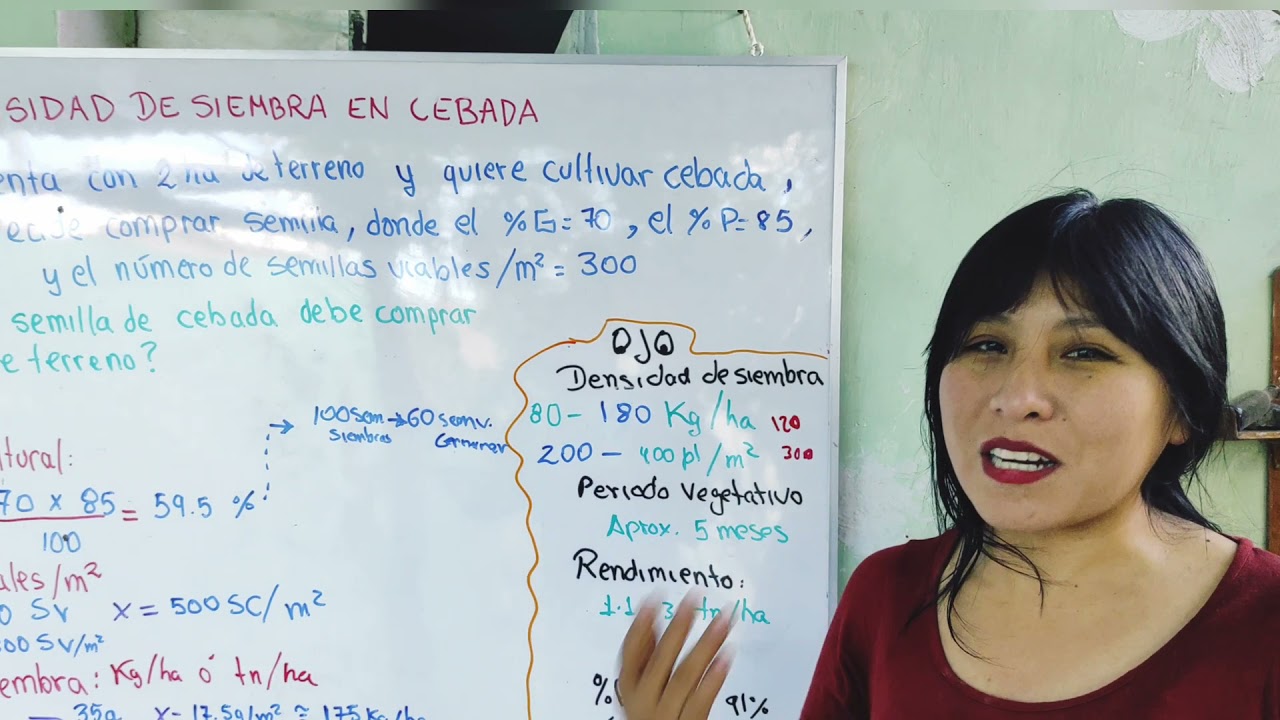 SIDAD DE SIEMBRA EN CEBADA
enta con 2 ha de terreno y quiere cultivar cebada,
comprar semilla, donde el % G = 70, el % P = 85,
y el número de semillas viables/m² = 300
semilla de cebada debe comprar
e terreno?
100 sem → 60 sem v.
siembras
Germinar
tural:
70 x 85 = 59.5 %
100
ales/m²
0 Sv x = 500 SC/m²
300 Sv/m²
embra: Kg/ha ó tn/ha
35g x = 17.5g/m² ≅ 175 Kg/ha
OJO
Densidad de siembra
80 - 180 Kg/ha 120
200 - 400 pl/m² 300
Periodo Vegetativo
Aprox. 5 meses
Rendimiento:
1.1 3 tn/ha
% 91%